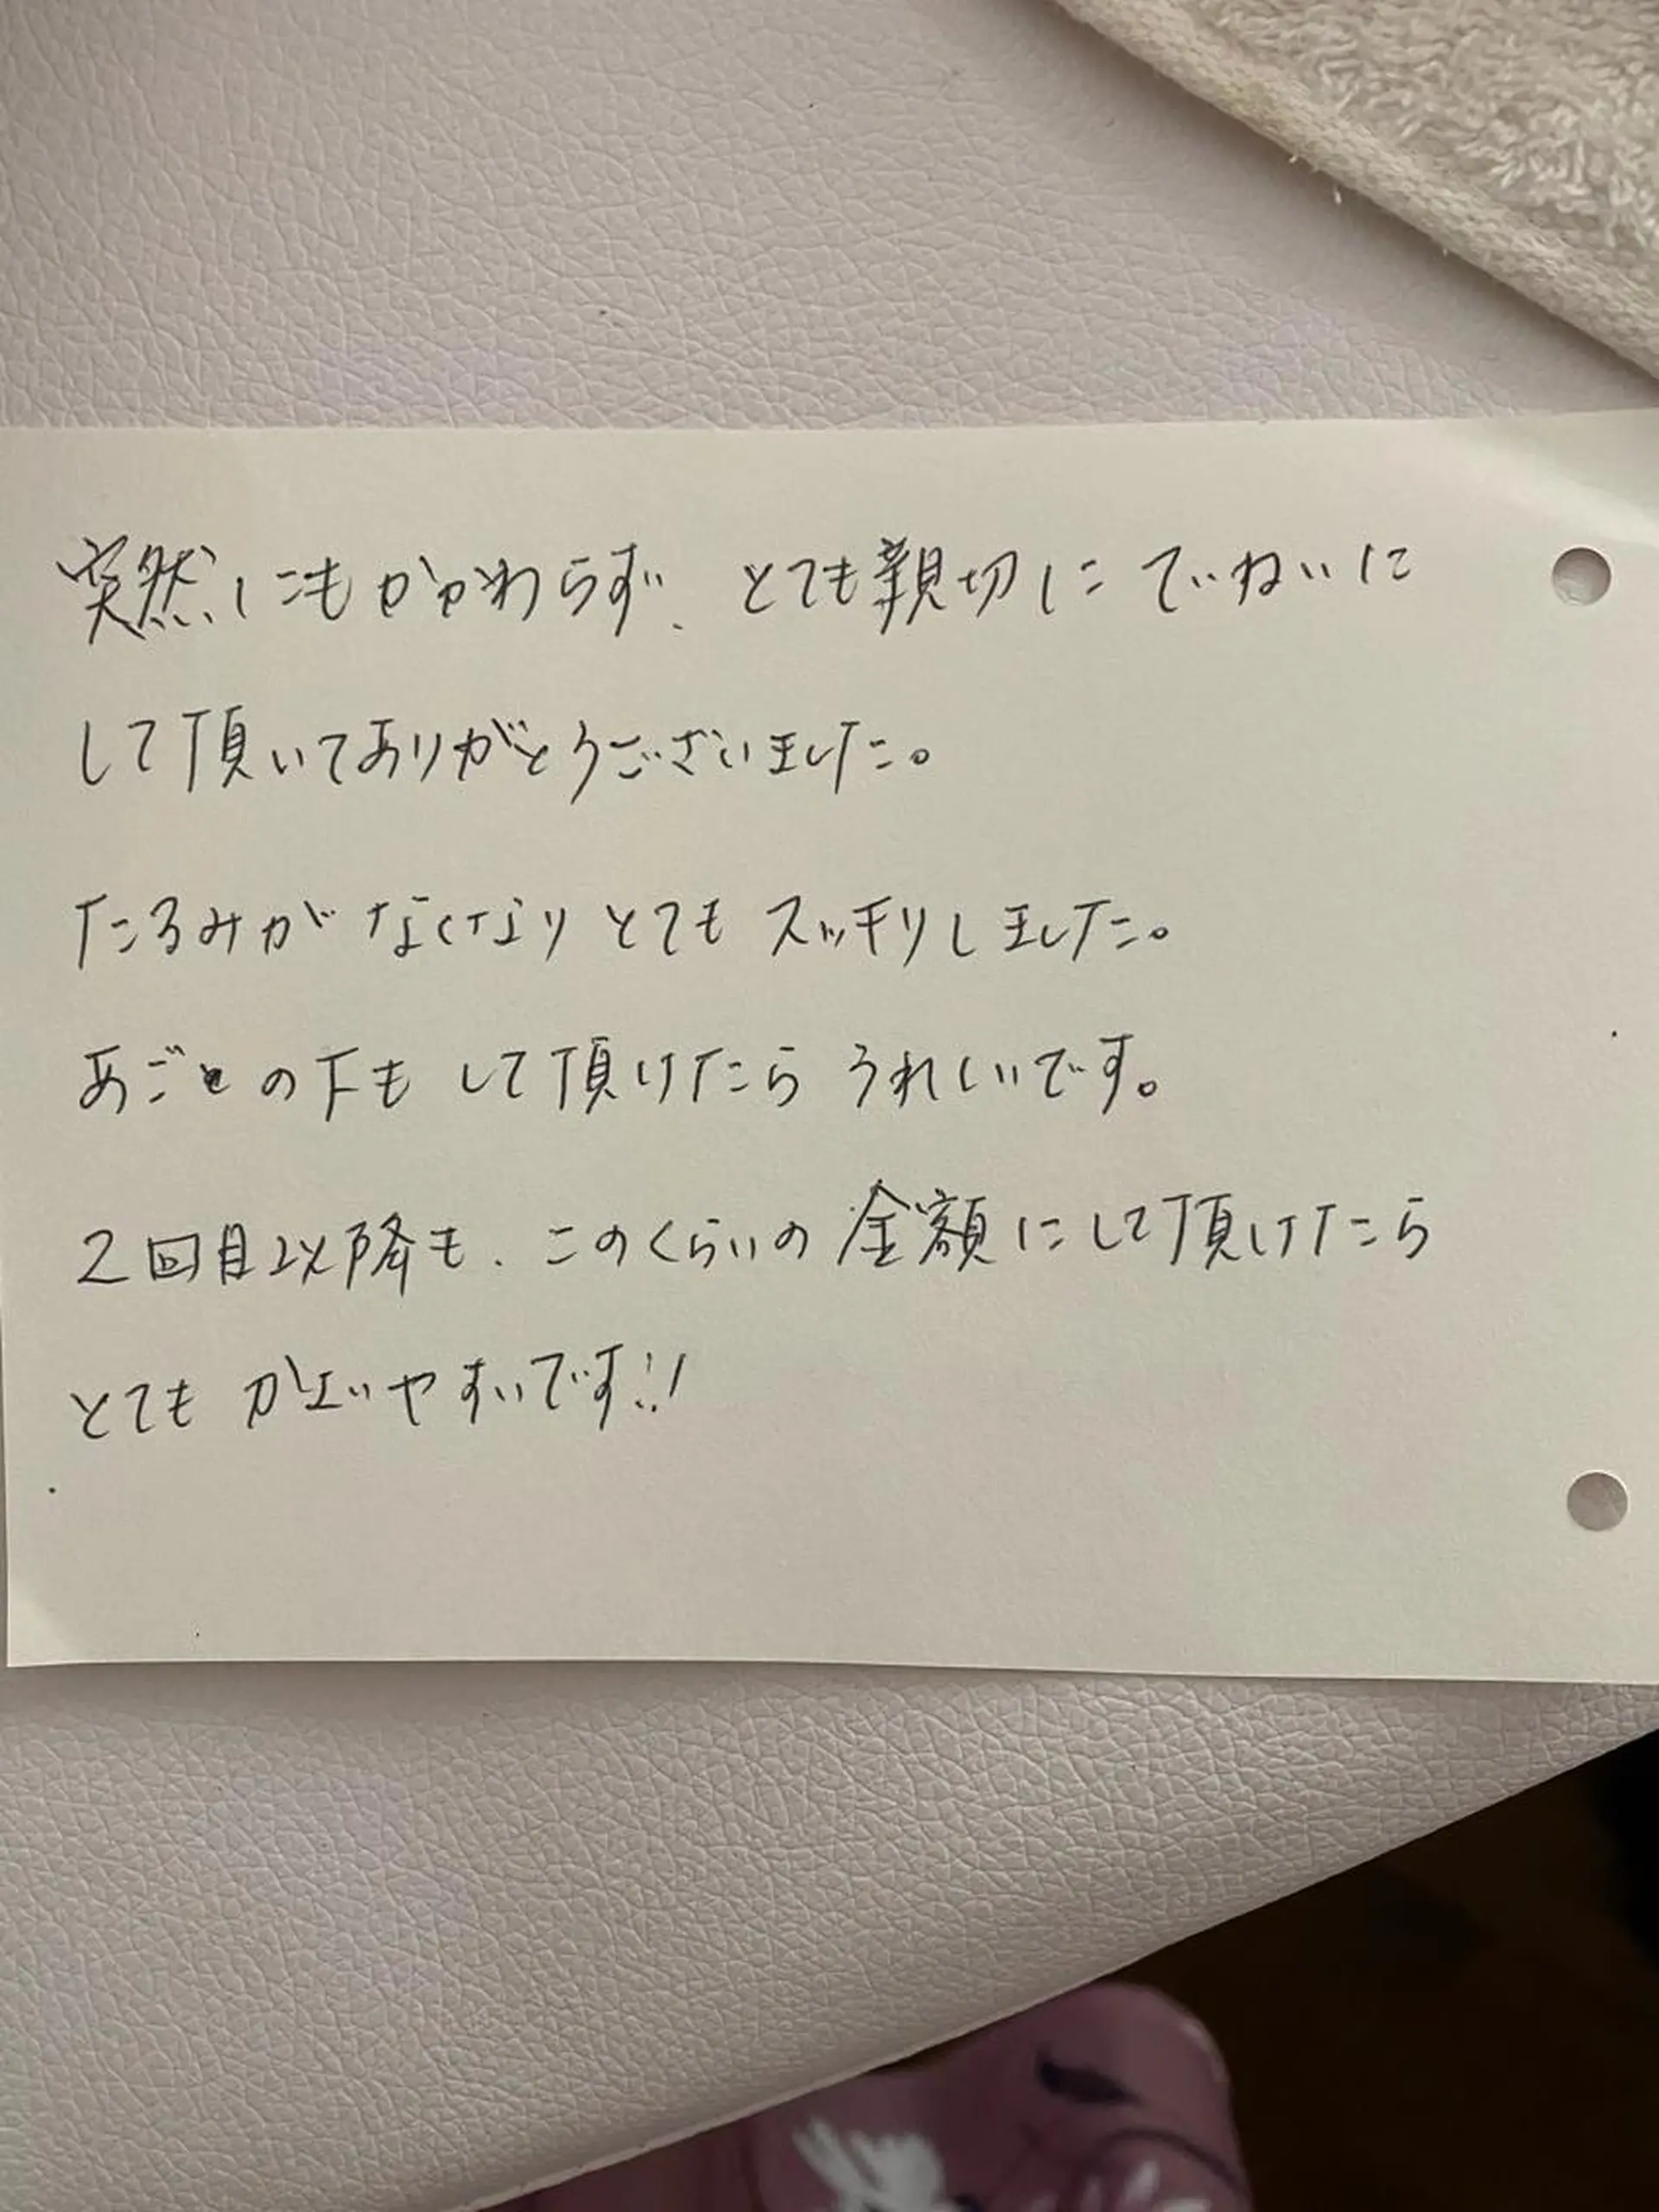 突然にもかかわらず、とても親切にていねいに
して頂いてありがとうございました。
たるみがなくなりとてもスッキリしました。
あごの下もして頂けたらうれしいです。
2回目以降も、このくらいの金額にして頂けたら
とてもかよいやすいです!!